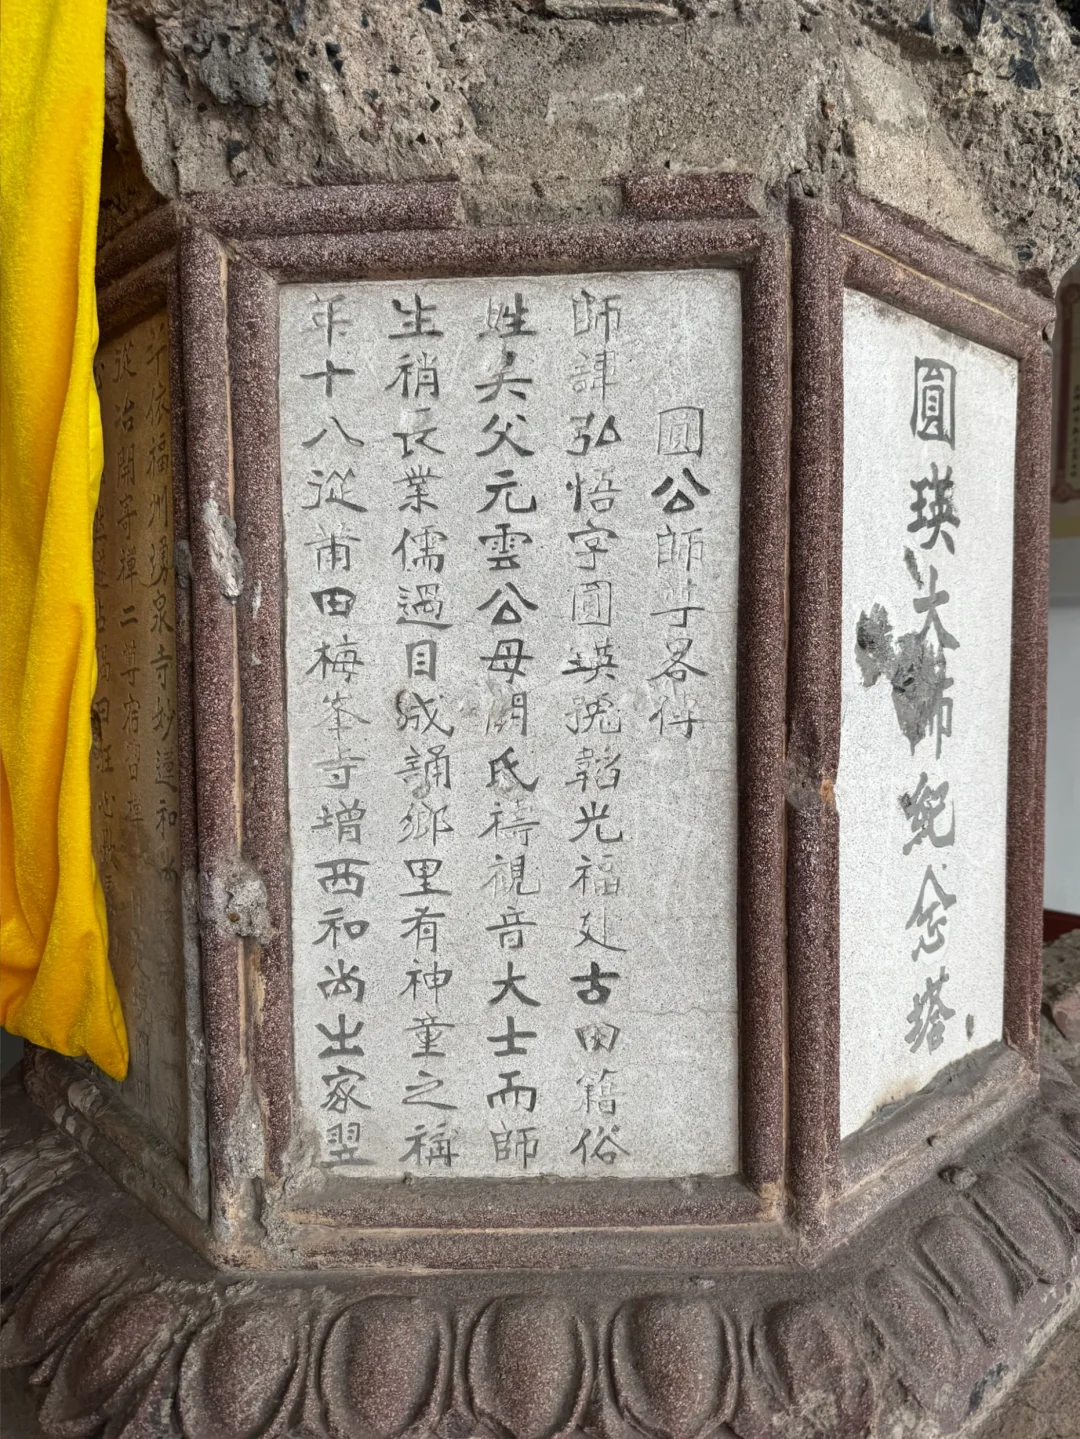 圓瑛大師紀念塔
圓公師尊畧傳
師諱弘悟字圓瑛號韜光福建古田籍俗
姓吳父元雲公母闕氏禱觀音大士而師
生稍長業儒過目成誦鄉里有神童之稱
年十八從莆田梅峯寺增西和尚出家翌
年依福州湧泉寺妙蓮和尚
從冶開寄禪二尊宿